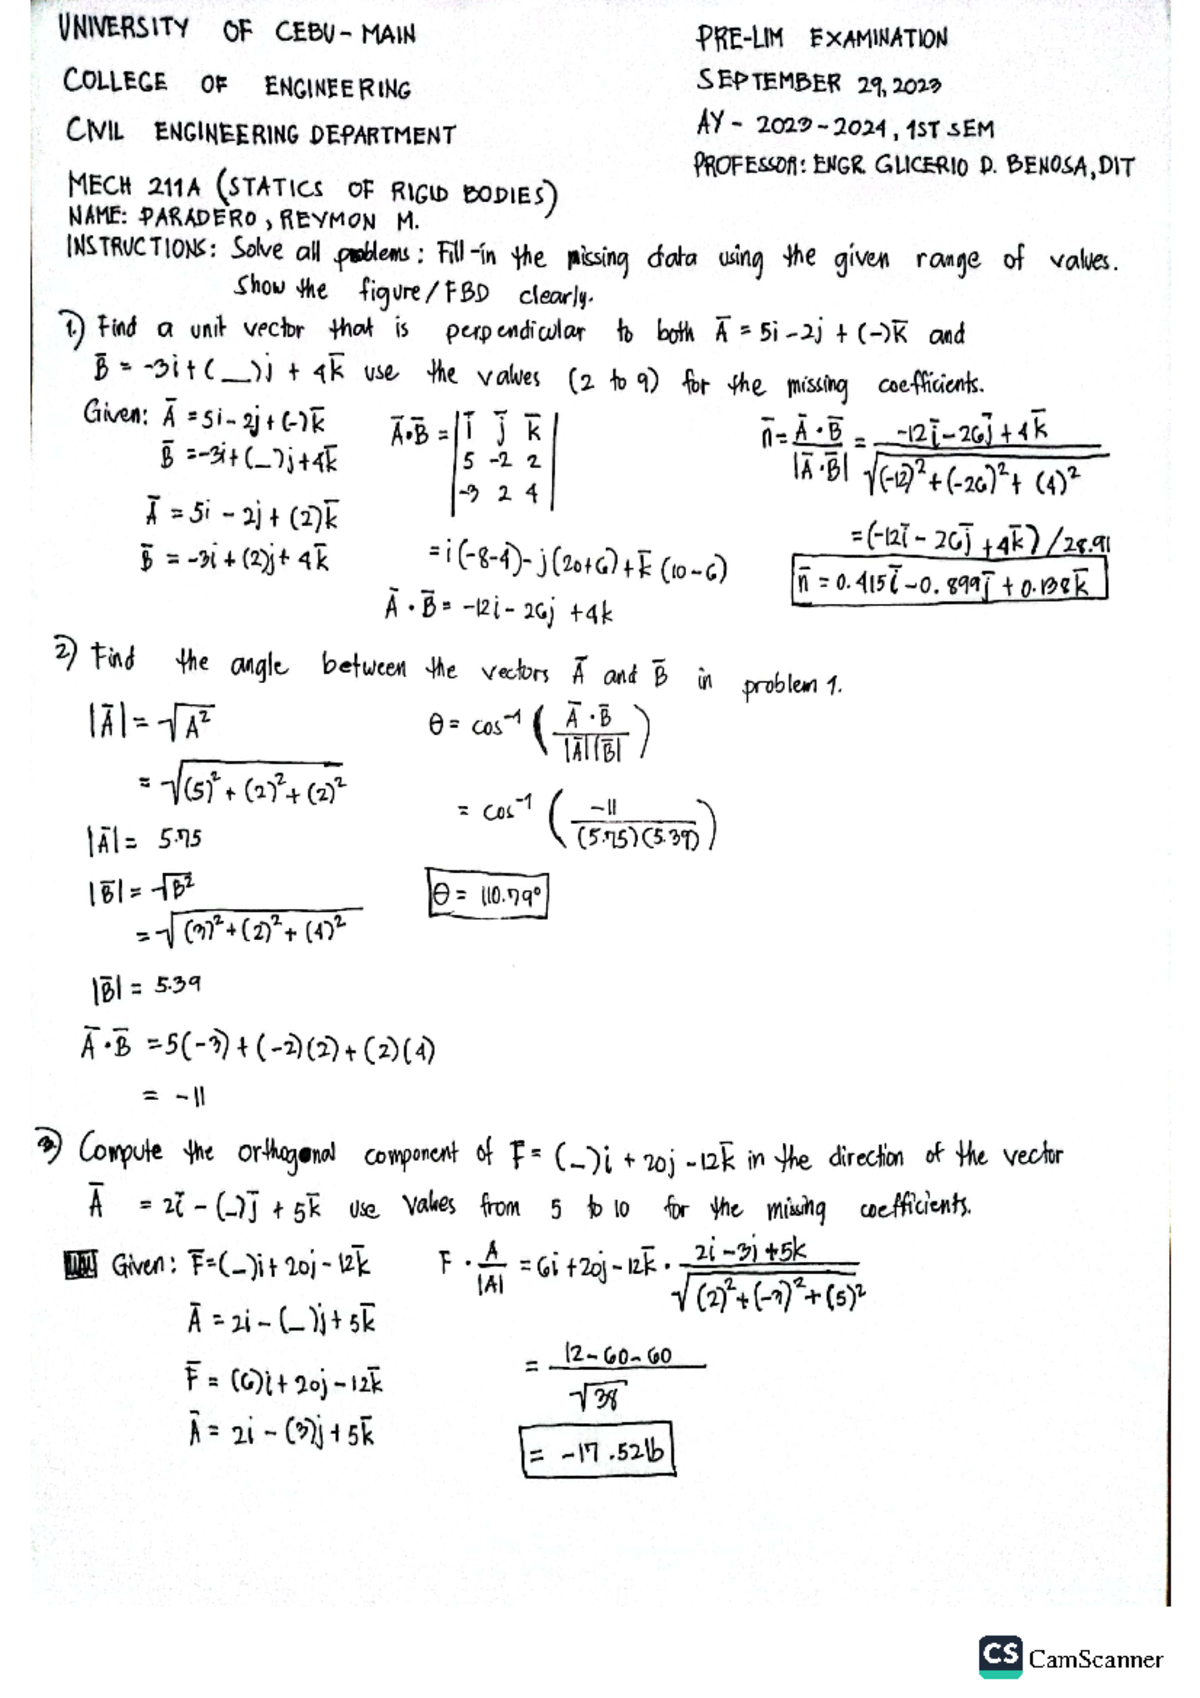 UNIVERSITY OF CEBU-MAIN
COLLEGE OF ENGINEERING
CIVIL ENGINEERING DEPARTMENT
MECH 211A (STATICS OF RIGID BODIES)
NAME: PARADERO, REYMON M.
PRE-LIM EXAMINATION
SEPTEMBER 29, 2023
AY - 2023-2024, 1ST SEM
PROFESSOR: ENGR. GLICERIO D. BENOSA, DIT
INSTRUCTIONS: Solve all problems: Fill-in the missing data using the given range of values.
Show the figure/FBD clearly.
1) Find a unit vector that is perpendicular to both A̅ = 5i - 2j + (-)k̅ and
B̅ = -3i + (_)j + 4k̅ use the values (2 to 9) for the missing coefficients.
Given: A̅ = 5i - 2j + (-)k̅
B̅ = -3i + (_)j + 4k̅
A̅ = 5i - 2j + (2)k̅
B̅ = -3i + (2)j + 4k̅
A̅•B̅ = |i̅ j̅ k̅|
|5 -2 2|
|-3 2 4|
= i(-8-4) - j(20+6) + k̅(10-6)
A̅ • B̅ = -12i - 26j + 4k
n̅ = A̅•B̅ / |A̅•B̅| = -12i̅ - 26j̅ + 4k̅ / √(-12)² + (-26)² + (4)²
= (-12i̅ - 26j̅ + 4k̅) / 28.91
n̅ = 0.415i̅ - 0.899j̅ + 0.138k̅
2) Find the angle between the vectors A̅ and B̅ in problem 1.
|A̅| = √A²
= √(5)² + (2)² + (2)²
|A̅| = 5.75
|B̅| = √B²
= √(3)² + (2)² + (4)²
|B̅| = 5.39
A̅•B̅ = 5(-3) + (-2)(2) + (2)(4)
= -11
θ = cos⁻¹ (A̅•B̅ / |A̅||B̅|)
= cos⁻¹ (-11 / (5.75)(5.39))
θ = 110.79°
3) Compute the orthogonal component of F = (_)i + 20j - 12k̅ in the direction of the vector
A̅ = 2i̅ - (_)j̅ + 5k̅ use values from 5 to 10 for the missing coefficients.
Given: F̅ = (_)i + 20j - 12k̅
A̅ = 2i - (_)j + 5k̅
F̅ = (6)i + 20j - 12k̅
A̅ = 2i - (3)j + 5k̅
F • A / |A| = 6i + 20j - 12k̅ • 2i - 3j + 5k / √(2)² + (-3)² + (5)²
= 12 - 60 - 60 / √38
= -17.52lb
CS CamScanner